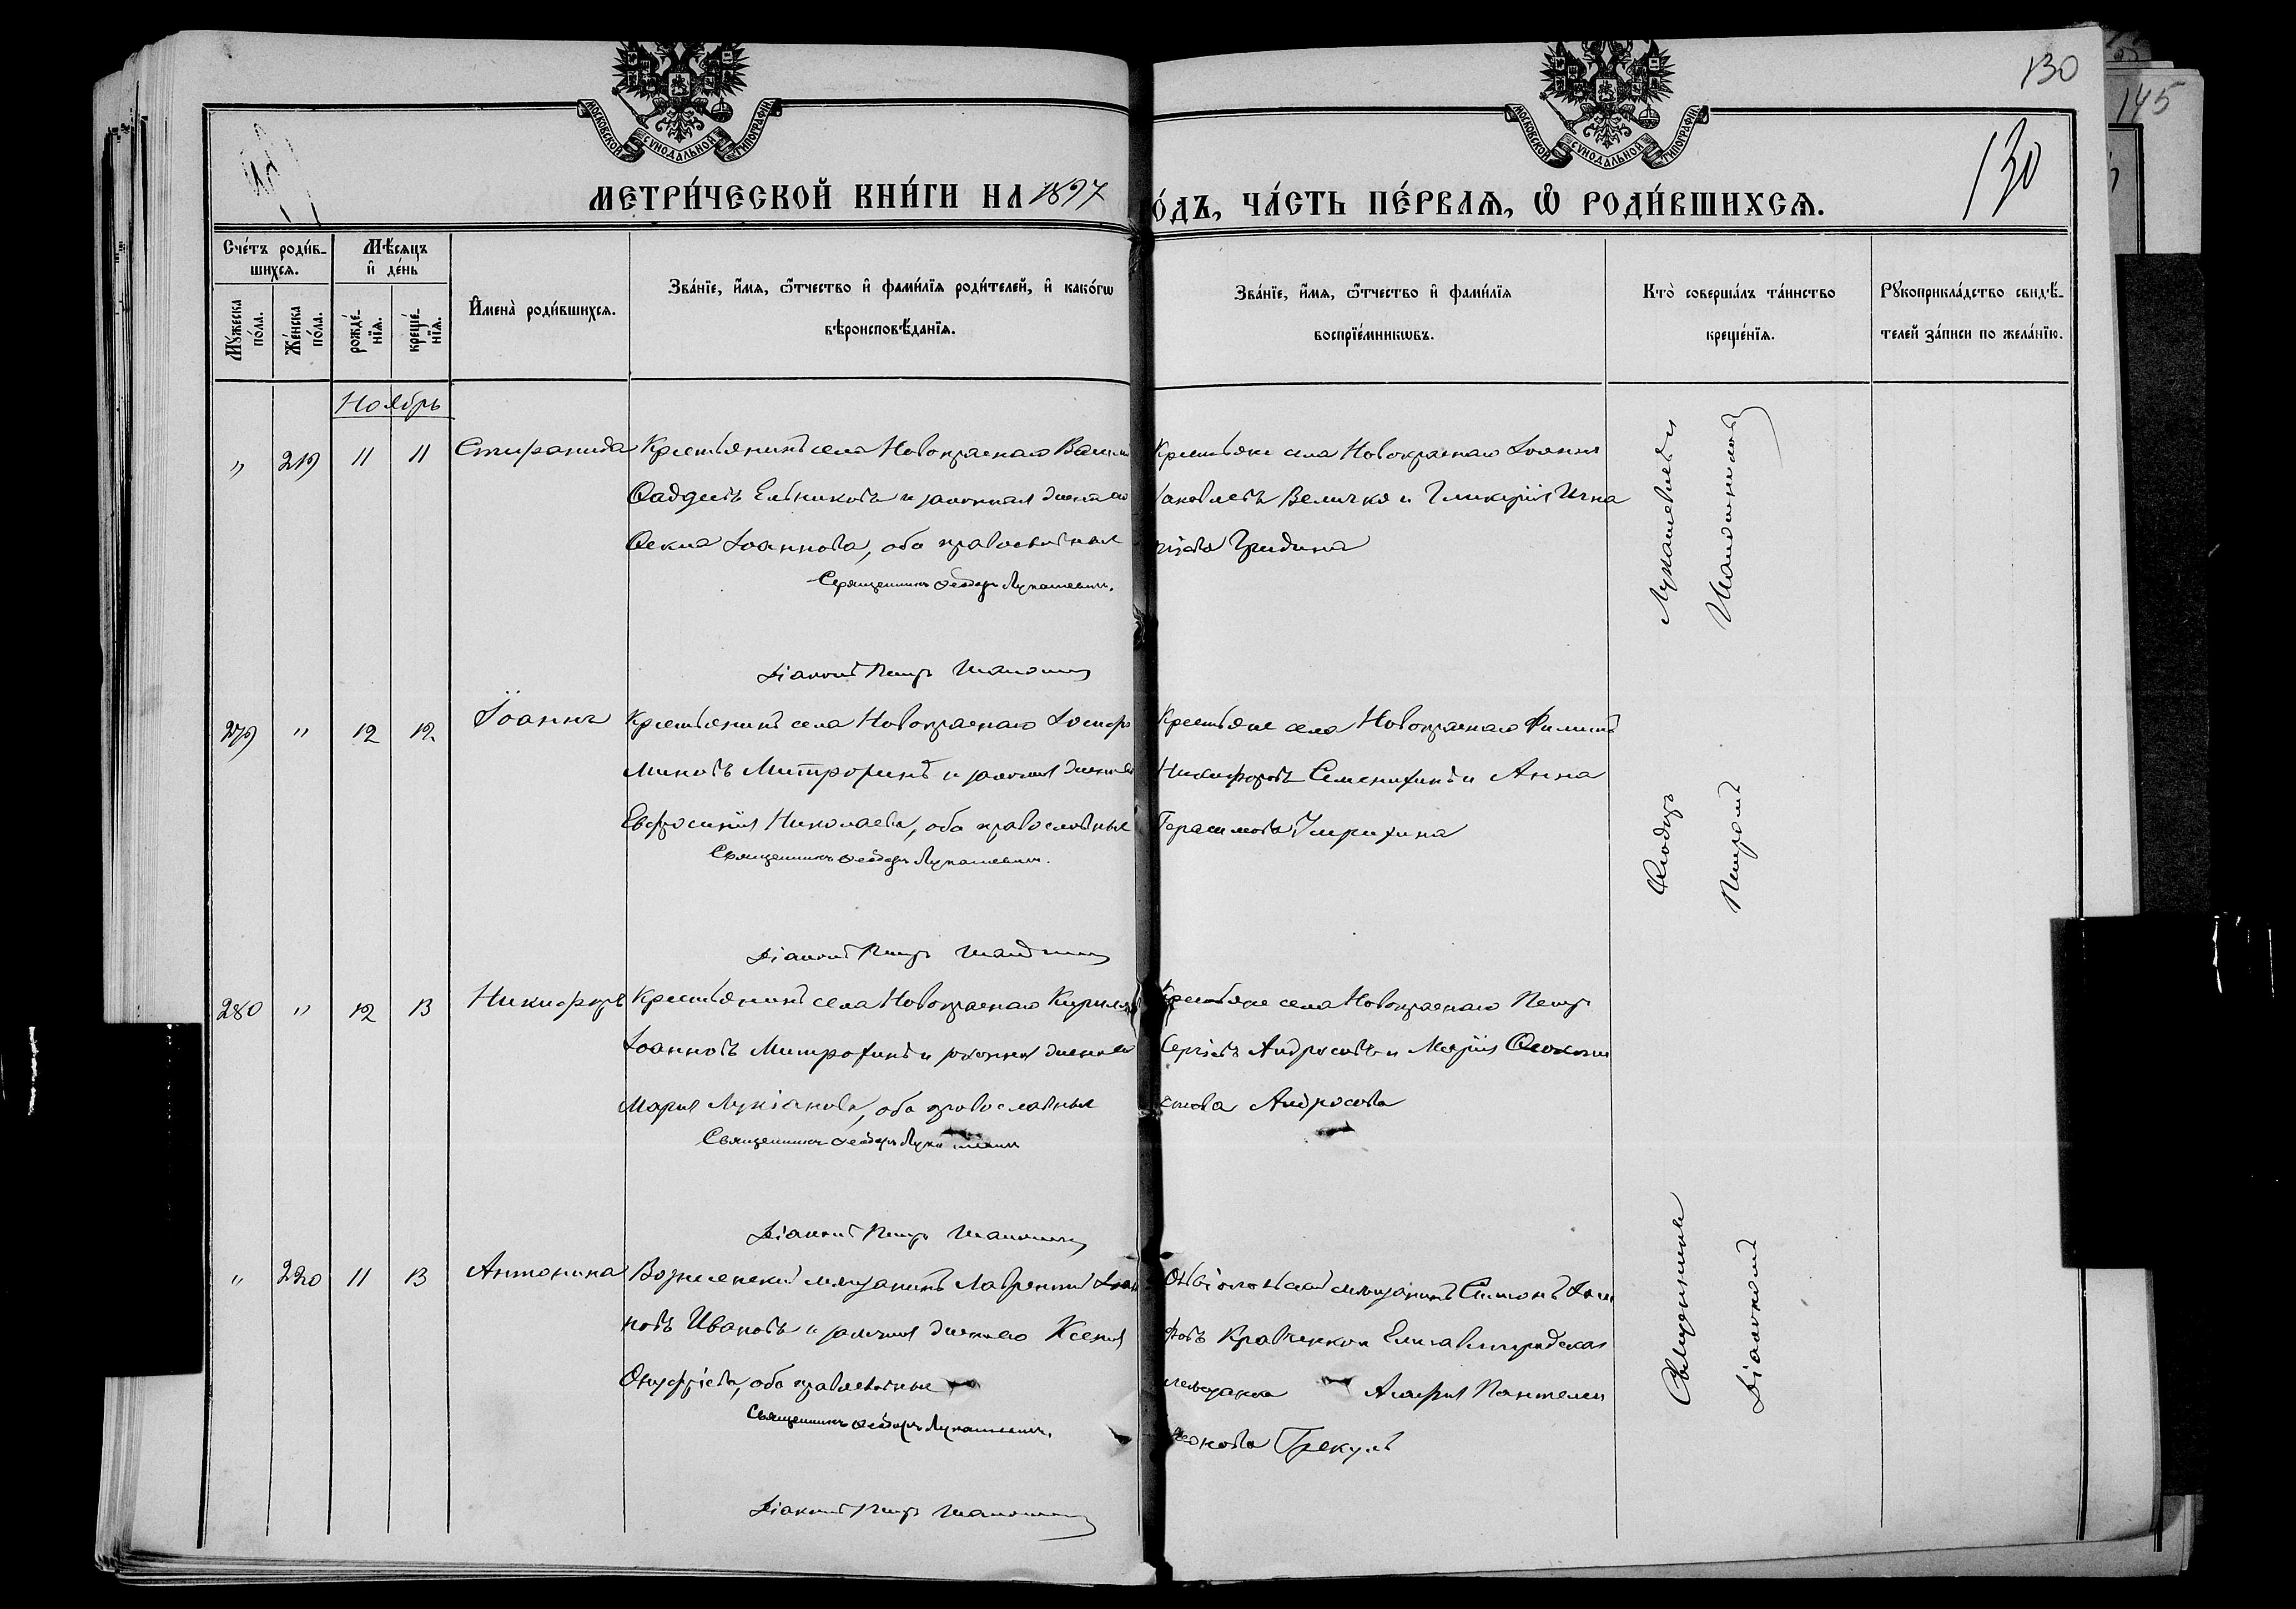 130
145
МОСКОВСКОЙ СѴНОДАЛЬНОЙ ТИПОГРАФІИ
МОСКОВСКОЙ СѴНОДАЛЬНОЙ ТИПОГРАФІИ
130
МЕТРИ́ЧЕСКОЙ КНИ́ГИ НА 1897
О́ДЪ, ЧА́СТЬ ПЕ́РВАѦ, Ѡ РОДИ́ВШИХСѦ.
Сче́тъ роди́в-
шихсѧ.
Мꙋ́жеска по́ла.
Же́нска по́ла.
Мѣ́сѧцъ
и҆ де́нь
рожде́-нїѧ.
креще́-нїѧ.
И҆мена̀ роди́вшихсѧ.
Зва́нїе, и҆́мѧ, ѻ҆́тчество и҆ фами́лїѧ роди́телей, и҆ како́гѡ
вѣроисповѣ́данїѧ.
Зва́нїе, и҆́мѧ, ѻ҆́тчество и҆ фами́лїѧ
воспрїе́мникѡвъ.
Кто̀ соверша́лъ та́инство
креще́нїѧ.
Рꙋкоприкла́дство свидѣ́-
телей за́писи по жела́нїю.
Ноябрь
" 219 11 11 Стефанида Крестьянинъ села Новокраснаго
Фаддеевъ Ельниковъ и законная жена его
Ѳекла Іоаннова, оба православные
Священникъ Ѳеодоръ Лукашевичъ.
Діаконъ Петръ
Крестьяне села Новокраснаго Іоаннъ
Яковлевъ Величко и Гликерія Игна
тіева Гридина
279 " 12 12 Іоаннъ Крестьянинъ села Новокраснаго Іосифъ
Миновъ Митрофинъ и законная жена его
Евфросинія Николаева, оба православные
Священникъ Ѳеодоръ Лукашевичъ.
Діаконъ Петръ
Крестьяне села Новокраснаго Филиппъ
Никифоровъ Семенихинъ и Анна
Герасимова
280 " 12 13 Никифоръ Крестьянинъ села Новокраснаго Кириллъ
Іоанновъ Митрохинъ и законная жена его
Марія Лукіанова, оба православные
Священникъ Ѳеодоръ Лукашевичъ
Діаконъ Петръ
Крестьяне села Новокраснаго Петръ
Сергіевъ Андросовъ и Марія
Андросова
" 220 11 13 Антонина Вознесенскій мѣщанинъ Лаврентій Іоан
новъ Ивановъ и законная жена его Ксенія
Онуфріева, оба православные
Священникъ Ѳеодоръ Лукашевичъ.
Діаконъ Петръ
мѣщанинъ Симонъ Іоси
фовъ Кравченко и Елисаветградская
мѣщанка Агафія Пантелеи
монова Грекулъ
Священникъ Ѳеодоръ Лукашевичъ и
Діаконъ Петромъ